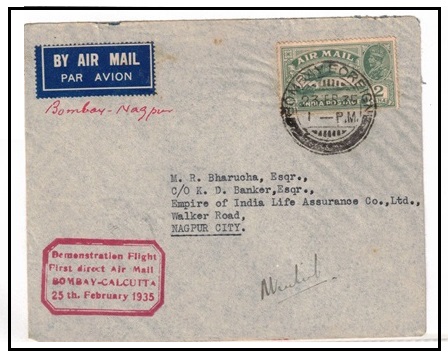 BY AIR MAIL
PAR AVION
Bombay-Nagpur
AIR MAIL
INDIA POSTAGE
2
BOMBAY FOREIGN
1 — P.M.
M. R. Bharucha, Esqr.,
C/O K. D. Banker, Esqr.,
Empire of India Life Assurance Co.,Ltd.,
Walker Road,
NAGPUR CITY.
Demonstration Flight
First direct Air Mail
BOMBAY-CALCUTTA
25 th. February 1935